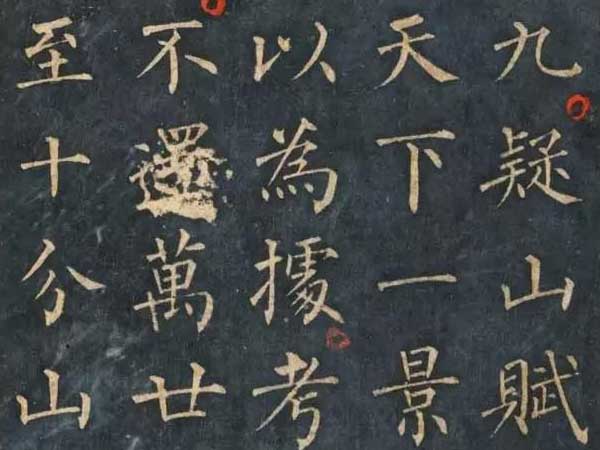 九疑山賦
天下一景
以為據考
不萬廿
至十分山